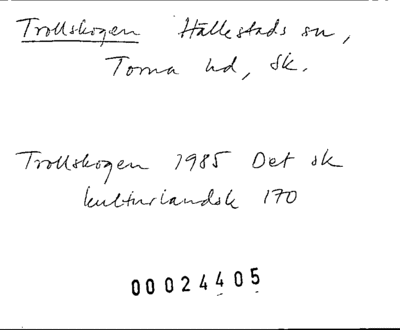 Trollskogen Hällestads sn,
Torna hd, Sk.
Trollskogen 1985 Det sk
kulturlandsk 170
00024405